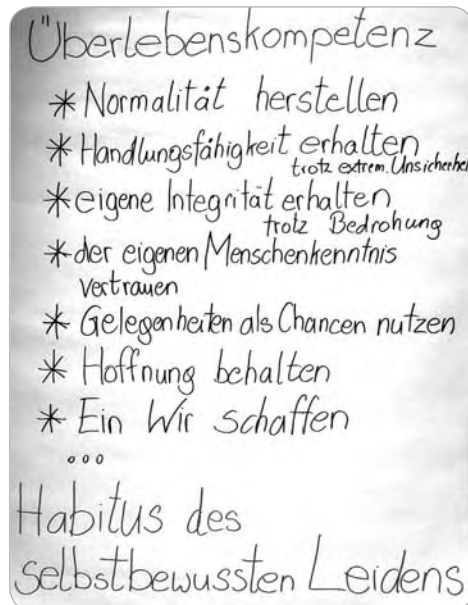 Überlebenskompetenz
* Normalität herstellen
* Handlungsfähigkeit erhalten
trotz extrem. Unsicherhei
* eigene Integrität erhalten
trotz Bedrohung
* der eigenen Menschenkenntnis
vertrauen
* Gelegenheiten als Chancen nutzen
* Hoffnung behalten
* Ein Wir schaffen
ooo
Habitus des
selbstbewussten Leidens